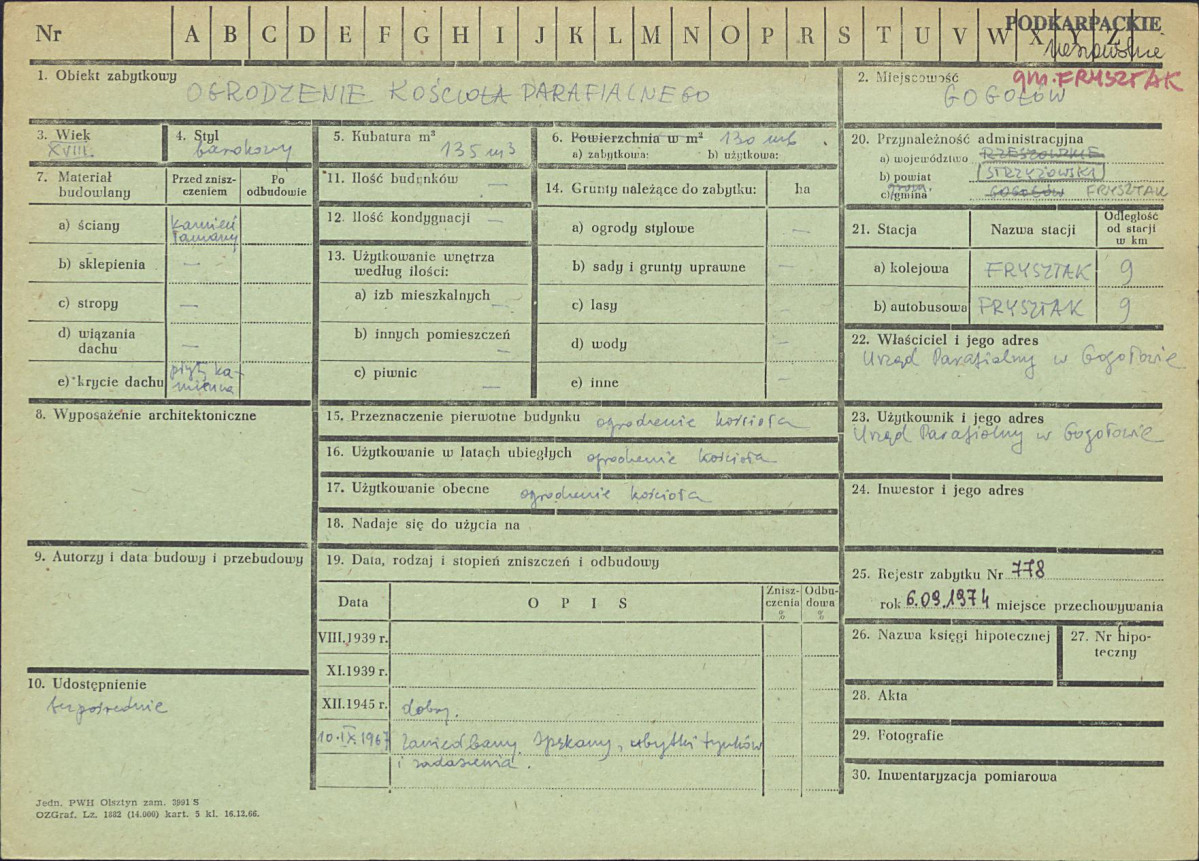 Nr A B C D E F G H I J K L M N O P R S T U V W X Y Z
PODKARPACKIE
1. Obiekt zabytkowy
OGRODZENIE KOŚCIOŁA PARAFIALNEGO
2. Miejscowość
gm. FRYSZTAK
GOGOŁÓW
3. Wiek
XVIII.
4. Styl
barokowy
5. Kubatura m³
135 m3
6. Powierzchnia w m² 130 mb
a) zabytkowa: b) użytkowa:
7. Materiał budowlany
Przed zniszczeniem
Po odbudowie
a) ściany kamień łamany
b) sklepienia —
c) stropy —
d) wiązania dachu —
e) krycie dachu płyty kamienne
8. Wyposażenie architektoniczne
9. Autorzy i data budowy i przebudowy
10. Udostępnienie
bezpośrednie
11. Ilość budynków —
12. Ilość kondygnacji —
13. Użytkowanie wnętrza według ilości:
a) izb mieszkalnych —
b) innych pomieszczeń —
c) piwnic —
14. Grunty należące do zabytku: ha
a) ogrody stylowe —
b) sady i grunty uprawne —
c) lasy —
d) wody —
e) inne —
15. Przeznaczenie pierwotne budynku ogrodzenie kościoła
16. Użytkowanie w latach ubiegłych ogrodzenie kościoła
17. Użytkowanie obecne ogrodzenie kościoła
18. Nadaje się do użycia na
19. Data, rodzaj i stopień zniszczeń i odbudowy
Data
O P I S
Zniszczenia %
Odbudowa %
VIII.1939 r.
XI.1939 r.
XII.1945 r. dobry.
10.IX.1967 Zaniedbany, spękany, ubytki tynków
i zadaszenia.
20. Przynależność administracyjna
a) województwo RZESZOWSKIE
b) powiat STRZYŻOWSKI
c) gmina GOGOŁÓW FRYSZTAK
21. Stacja
Nazwa stacji
Odległość od stacji w km
a) kolejowa FRYSZTAK 9
b) autobusowa FRYSZTAK 9
22. Właściciel i jego adres
Urząd Parafialny w Gogołowie
23. Użytkownik i jego adres
Urząd Parafialny w Gogołowie
24. Inwestor i jego adres
25. Rejestr zabytku Nr 778
rok 6.09.1974 miejsce przechowywania
26. Nazwa księgi hipotecznej
27. Nr hipoteczny
28. Akta
29. Fotografie
30. Inwentaryzacja pomiarowa
Jedn. PWH Olsztyn zam. 3991 S
OZGraf. Lz. 1682 (14.000) kart. 5 kl. 16.12.66.